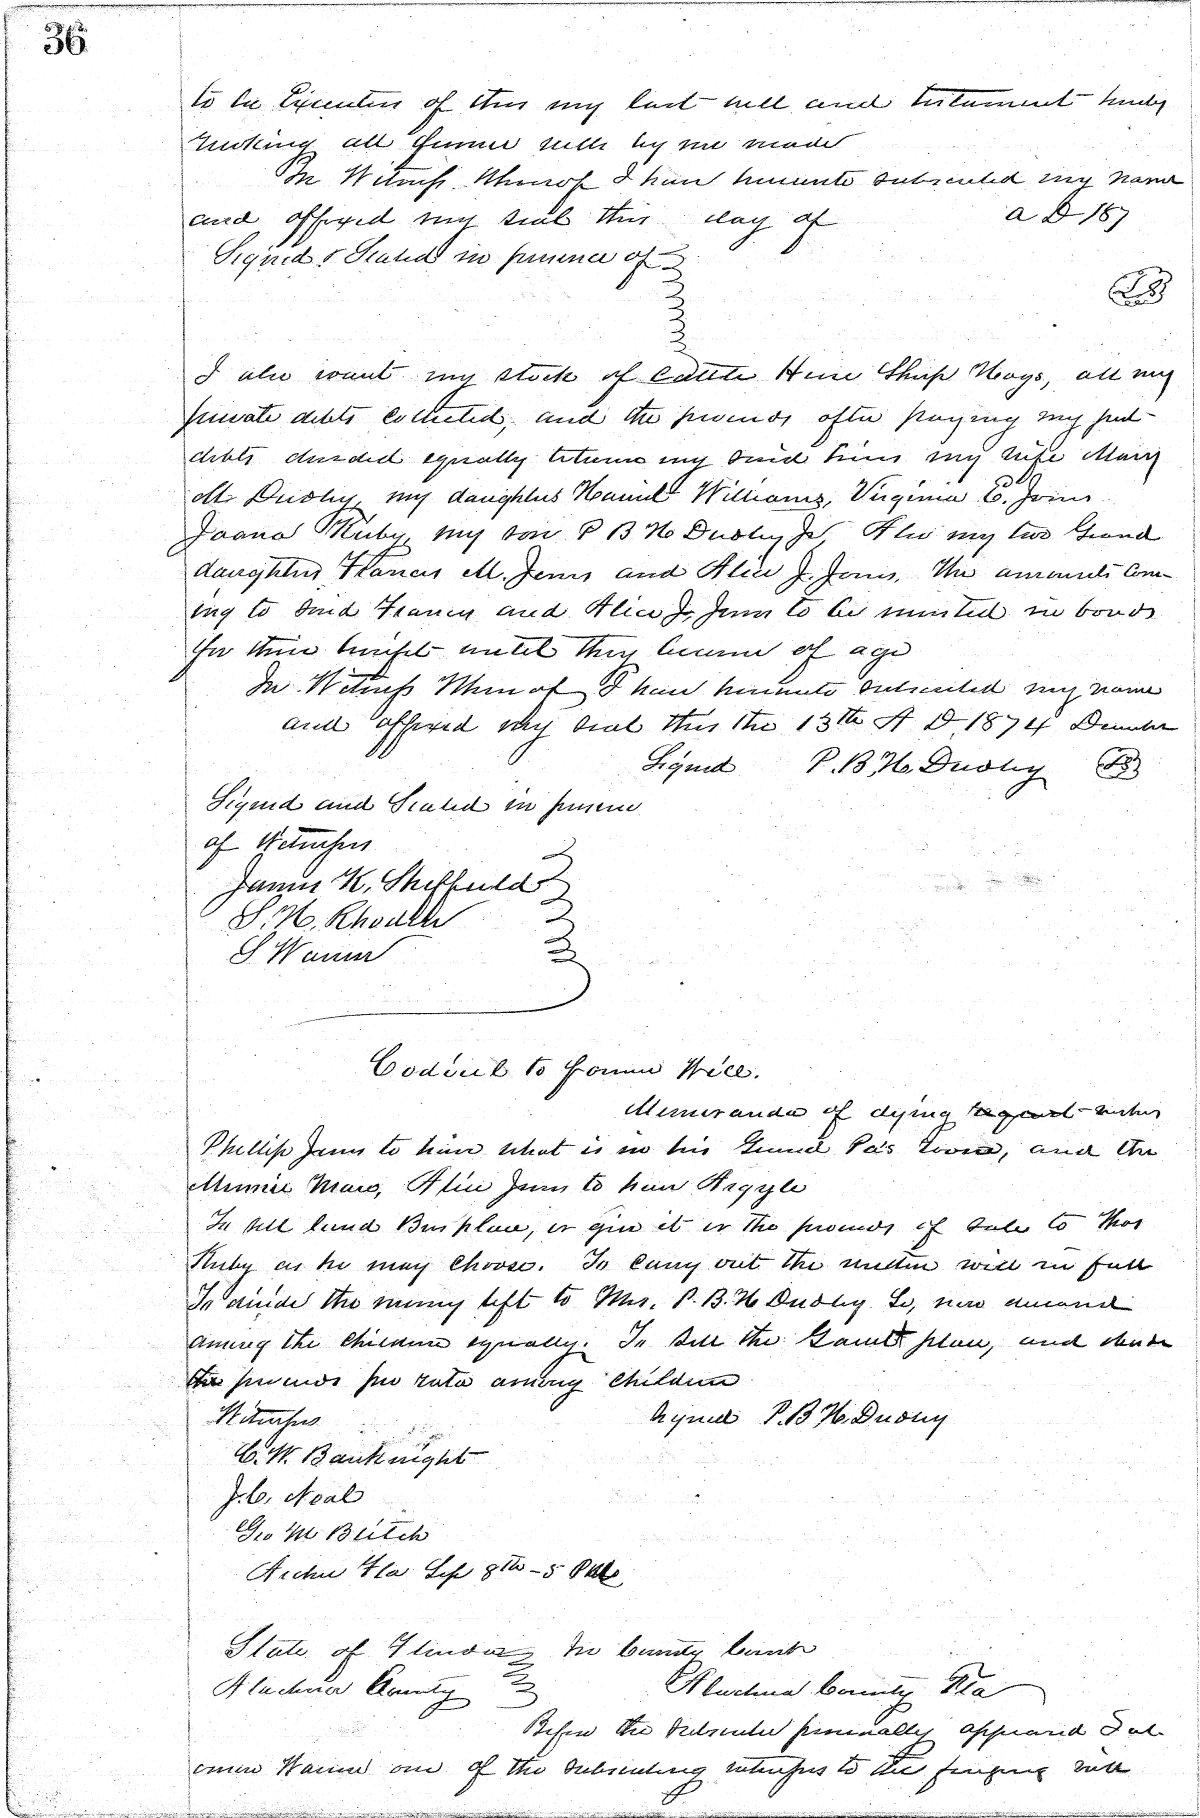 36
to be Executors of this my last will and testament hereby
revoking all former wills by me made
In Witness Whereof I have hereunto subscribed my name
and affixed my seal this day of A D 187
Signed & Sealed in presence of
LS
I also want my stock of Cattle Horse Sheep Hogs, all my
private debts collected, and the proceeds after paying my just
debts divided equally between my said heirs my wife Mary
M Dudley, my daughters Harriet Williams, Virginia E. Jones
Joana Ruby, my son P B H Dudley Jr, Also my two Grand
daughters Frances M. Jones and Alice J. Jones. The amounts com-
ing to said Frances and Alice J. Jones to be invested in bonds
for their benefit until they become of age
In Witness Whereof I have hereunto subscribed my name
and affixed my seal this the 13th A D 1874 December
Signed P. B. H. Dudley LS
Signed and Sealed in presence
of Witnesses
James K. Sheffield
S. H. Rhodes
S Warren
Codicil to former Will.
Memoranda of dying request wishes
Phillip Jones to have what is in his Grand Pa's room, and the
Minnie Mare, Alice Jones to have Argyle
To sell land place, or give it or the proceeds of sale to Thos
Ruby as he may choose. To carry out the written will in full
To divide the money left to Mrs. P. B. H Dudley Sr, now deceased
among the children equally. To sell the place, and divide
the proceeds pro rata among children
Witnesses Signed P. B H. Dudley
C. W. Bauknight
J. C. Neal
Geo M Blitch
Archer Fla Sep 8th - 5 PM
State of Florida In County Court
Alachua County Alachua County Fla
Before the subscriber personally appeared Sol-
omon Warren one of the subscribing witnesses to the foregoing will